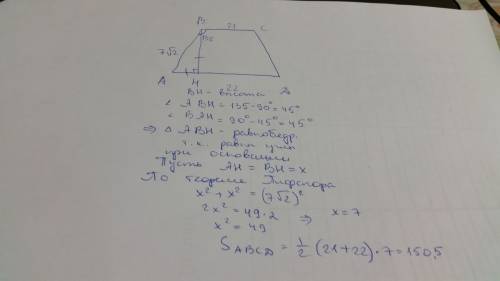 B 21 C
7√2
A H 22 D
BH - высота
∠ ABH = 135-90°=45°
∠ BAH = 90°-45°=45°
⇒ △ ABH - равнобедр.
т.к. равны углы
при основании
Пусть AH = BH = x
По теореме Пифагора
x² + x² = (7√2)²
2x² = 49·2 ⇒ x=7
x² = 49
S ABCD = 1/2 (21+22)·7=150,5